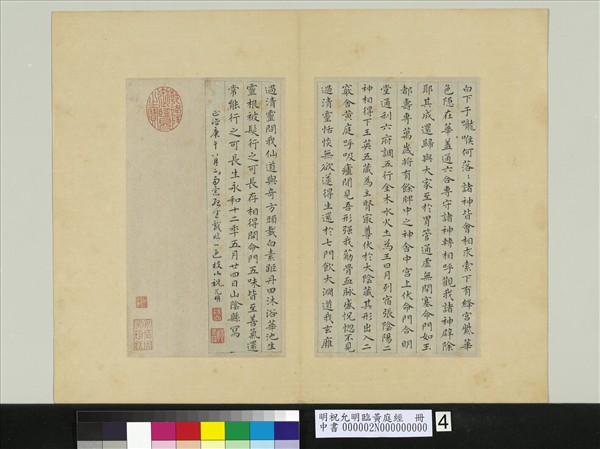 白下于嚨喉何落〻諸神皆會相求索下有絳宮紫華
色隱在華蓋通六合專守諸神轉相呼觀我諸神辟除
耶其成還歸與大家至於胃管通虛無閉塞命門如玉
都壽專萬歲將有餘脾中之神舍中宮上伏命門合明
堂通利六府調五行金木水火土為王日月列宿張陰陽二
神相得下玉英五藏為主腎最尊伏於太陰藏其形出入二
竅舍黃庭呼吸廬間見吾形強我筋骨血脉盛恍惚不見
過清靈恬惔無欲遂得生還於七門飲大淵道我玄雍
過清靈問我仙道與奇方頭載白素距丹田沐浴華池生
靈根被髮行之可長存相得開命門五味皆至善氣還
常能行之可長生永和十二年五月廿四日山陰縣寫
正德庚午八月 枝山祝允明
明祝允明臨黃庭經 冊
中書 000002N000000000
4